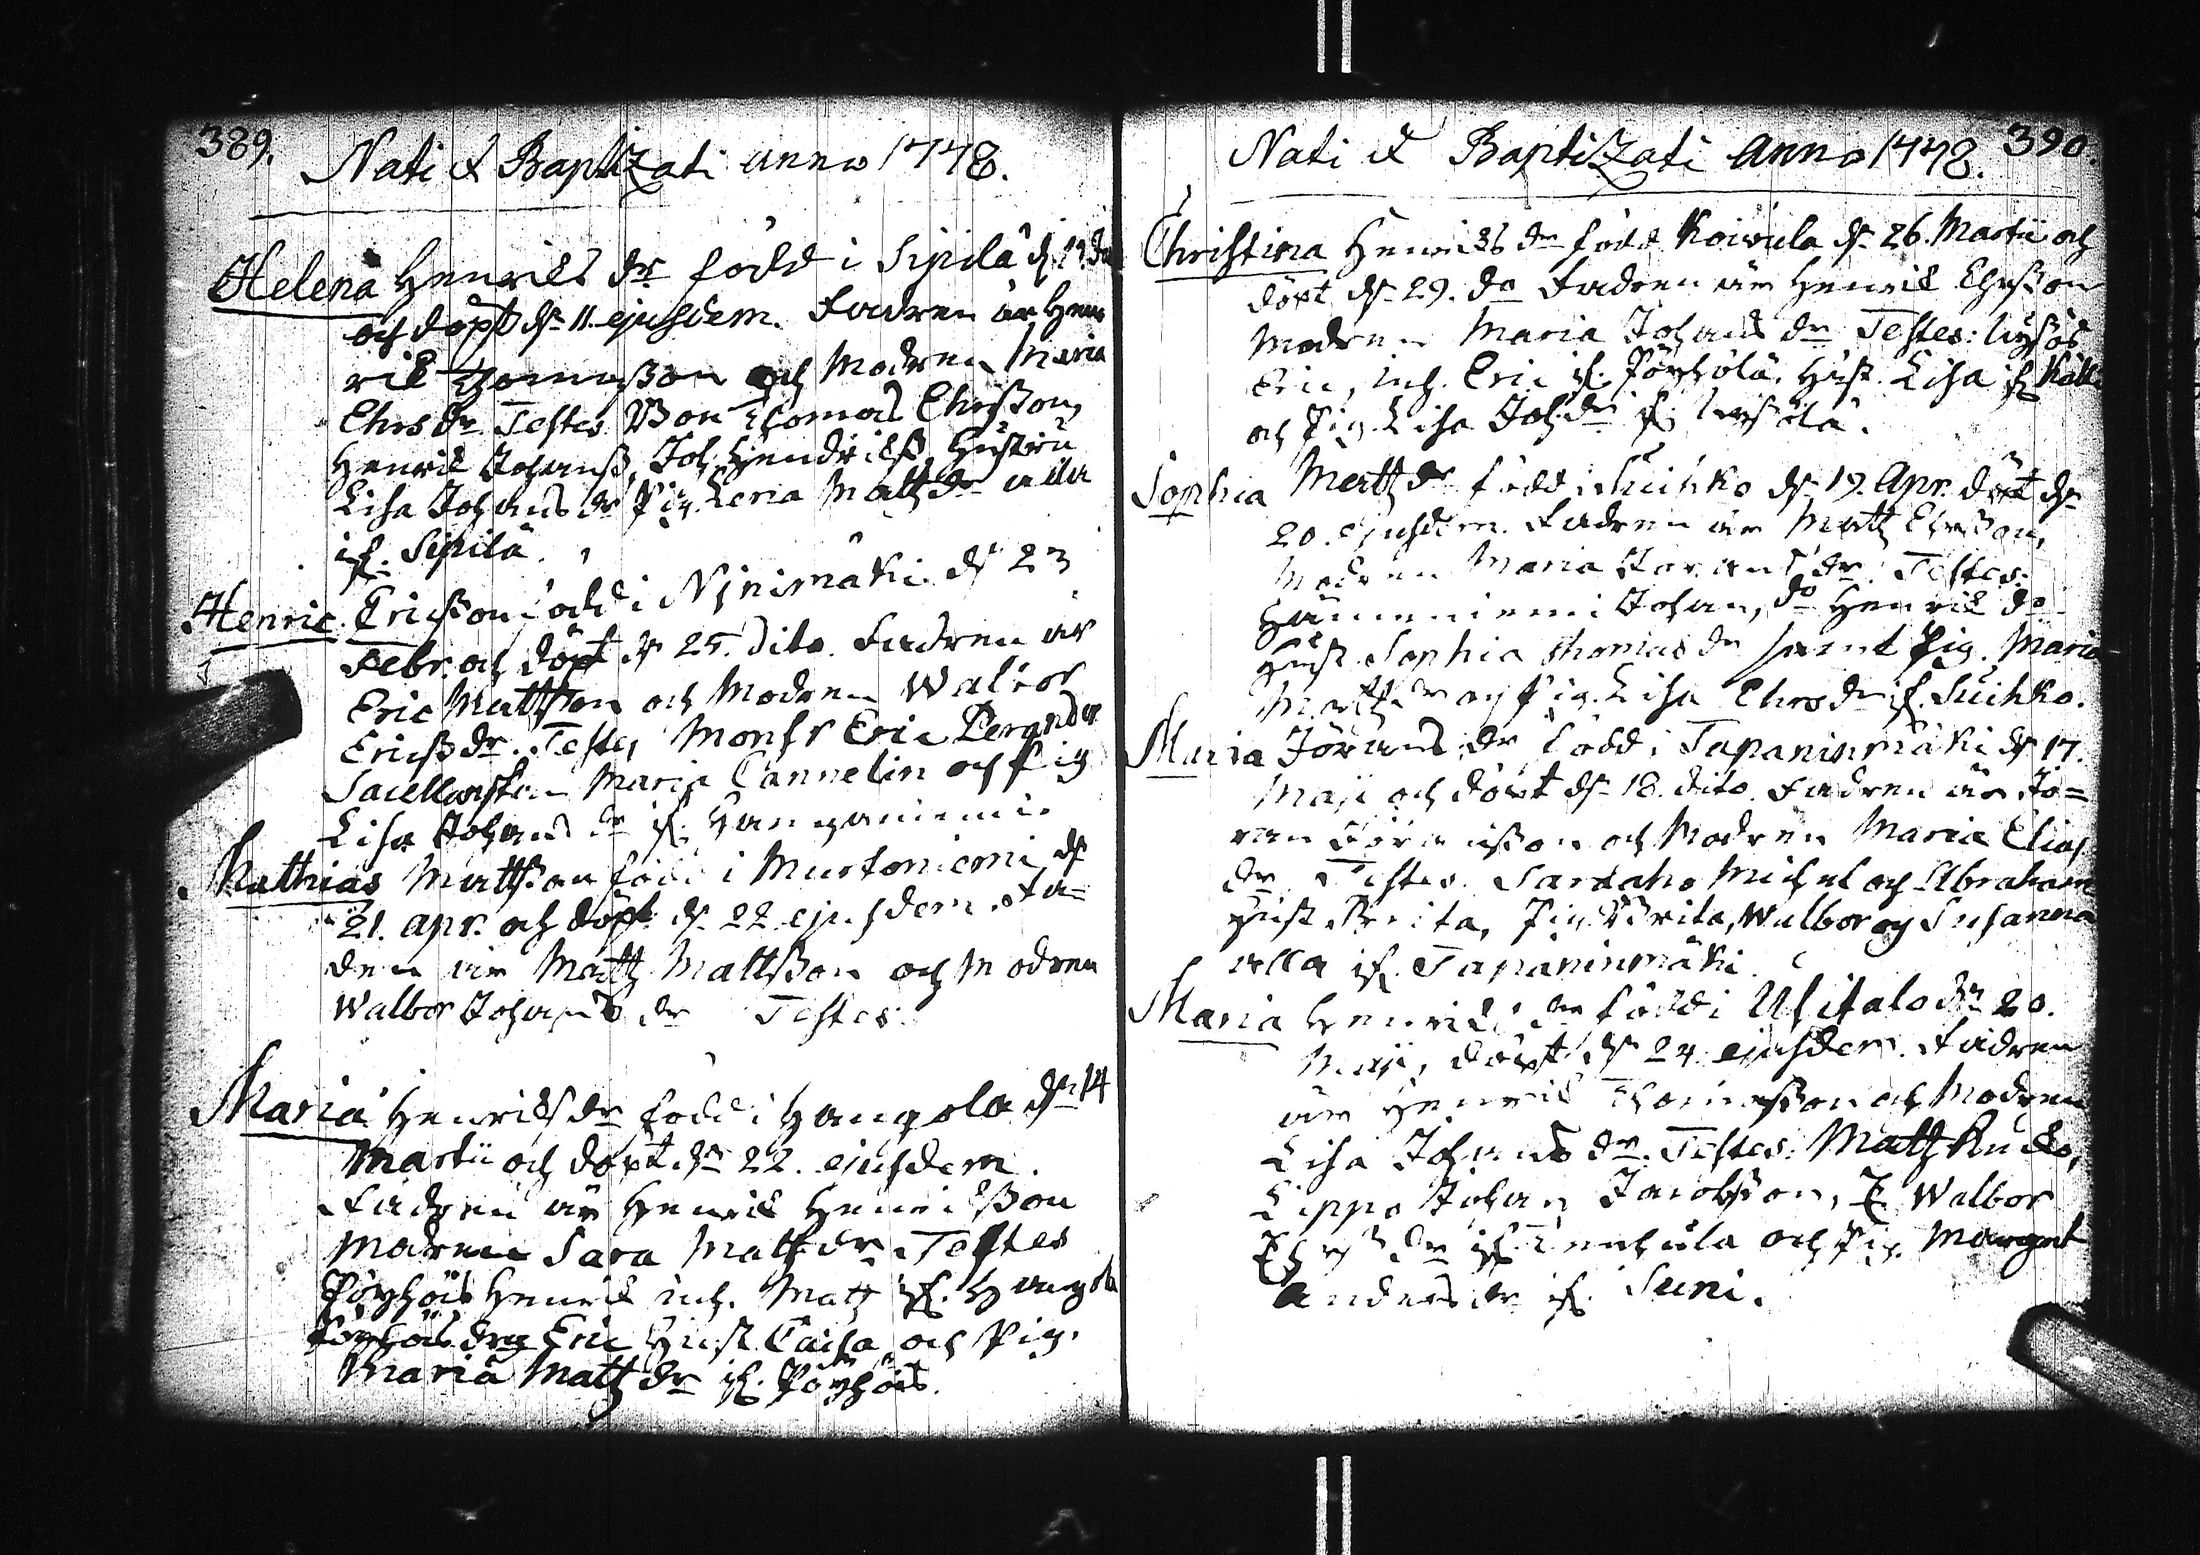 389.
Nati & Baptizati anno 1748.
Helena Henrics dr född i Sipilä
och döpt dn 11. ejusdem. Fadren är Hen
ric Thomasson och Modren Maria
Ehrs dr Testes Thomas Ehrsson,
Henric Johanss, Joh. Hendrichss, Hustru
Lisa Johans dr Pig. Lena Matts dr alla
if. Sipilä.
Henric Ericsson född i Nynimäki dn 23
Febr. och döpt dn 25. Dito. Fadren är
Eric Mattsson och Modren Walbor
Ericss dr. Testes Monsr Eric Perander
Maria Cannelin och Pig
Lisa Johans dr if.
Mathias Mattsson född i Murtoniemi dn
21. apr. och döpt dn 22 ejusdem. Fa-
den är Matts Mattsson och Modren
Walbor Johans dr Testes.
Maria Henrichs dr född i Hangola dn 14
Martii och döpt dn 22. ejusdem.
Fadren är Henric Henricsson
Modren Sara Matts dr Testes
Pöyhöis Henric inh. Matts if. Hangola
Pöyhöis drg Eric Hust. Caisa och Pig.
Maria Matts dr if. Pöyhöis.
390.
Nati & Baptizati Anno 1748.
Christina Henrics dr född Koivula dn 26. Martii och
döpt dn 29. do Fadren är Henric Ehrsson
Modren Maria Johans dr Testes:
Eric, inh. Eric if. Pöyhölä. Hust. Lisa if
och Pig. Lisa Joh: dr if.
Sophia Matts dr född i Suihko dn 19. Apr. döpt dn
20. ejusdem. Fadren är Matts Ehrsson,
Modren Maria Jörans dr. Testes:
Johan, do Henric do
Hust. Sophia Thomas dr samt Pig. Maria
Matts dr och Pig. Lisa Ehrs dr if. Suihko.
Maria Jörans dr född i Tapaninmäki dn 17.
Maji och döpt dn 18. dito. Fadren är Jö=
ran Göransson och Modren Maria Elias
dr Testes. Sartaho Michel och Abraham
Hust. Brita, Pig. Brita, Walbor och Susanna
alla if. Tapaninmäki.
Maria Henrics dr född i Ulitalo dn 20.
Maji, döpt dn 24 ejusdem. Fadren
är Henric Thomasson och Modren
Lisa Johans dr. Testes: Matts
Lippo Johan Jacobsson, Walbor
dr if. och Pig. Margret
Anders dr if. Suni.